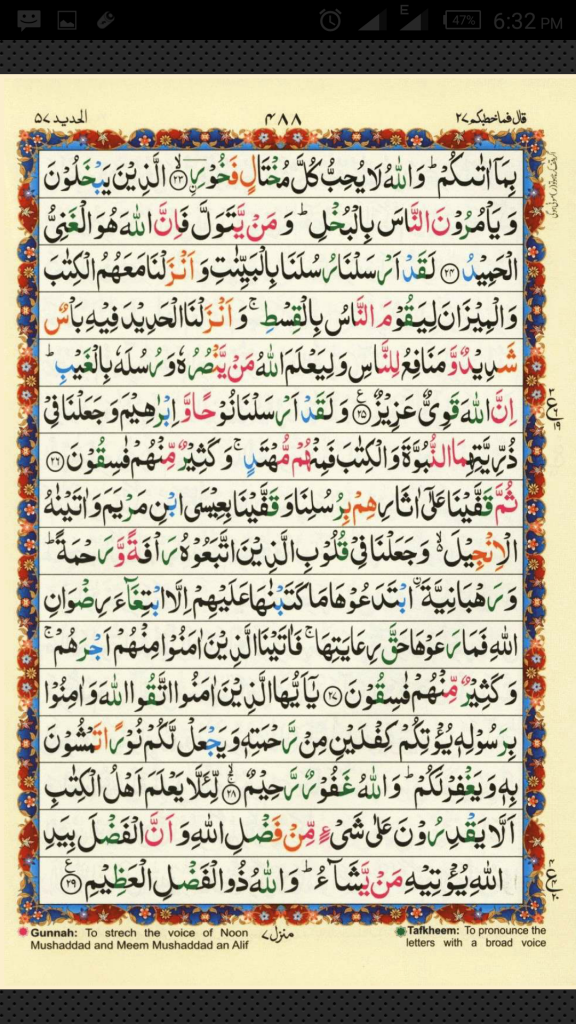 47% 6:32 PM
E
الحدید ۵۷
۴۸۸
قال فما خطبكم ۲۷
بِمَاۤ اٰتٰىكُمْ ؕ وَاللّٰهُ لَا يُحِبُّ كُلَّ مُخْتَالٍ فَخُوْرِ ۙ﴿۲۳﴾ الَّذِيْنَ يَبْخَلُوْنَ
وَ يَاْمُرُوْنَ النَّاسَ بِالْبُخْلِ ؕ وَ مَنْ يَّتَوَلَّ فَاِنَّ اللّٰهَ هُوَ الْغَنِىُّ
الْحَمِيْدُ ﴿۲۴﴾ لَقَدْ اَرْسَلْنَا رُسُلَنَا بِالْبَيِّنٰتِ وَ اَنْزَلْنَا مَعَهُمُ الْكِتٰبَ
وَالْمِيْزَانَ لِيَقُوْمَ النَّاسُ بِالْقِسْطِ ۚ وَ اَنْزَلْنَا الْحَدِيْدَ فِيْهِ بَاْسٌ
شَدِيْدٌ وَّ مَنَافِعُ لِلنَّاسِ وَ لِيَعْلَمَ اللّٰهُ مَنْ يَّنْصُرُهٗ وَ رُسُلَهٗ بِالْغَيْبِ ؕ
اِنَّ اللّٰهَ قَوِىٌّ عَزِيْزٌ ﴿۲۵﴾ وَ لَقَدْ اَرْسَلْنَا نُوْحًا وَّ اِبْرٰهِيْمَ وَ جَعَلْنَا فِىْ
ذُرِّيَّتِهِمَا النُّبُوَّةَ وَ الْكِتٰبَ فَمِنْهُمْ مُّهْتَدٍ ۚ وَ كَثِيْرٌ مِّنْهُمْ فٰسِقُوْنَ ﴿۲۶﴾
ثُمَّ قَفَّيْنَا عَلٰۤى اٰثَارِهِمْ بِرُسُلِنَا وَ قَفَّيْنَا بِعِيْسَى ابْنِ مَرْيَمَ وَ اٰتَيْنٰهُ
الْاِنْجِيْلَ ۙ وَ جَعَلْنَا فِىْ قُلُوْبِ الَّذِيْنَ اتَّبَعُوْهُ رَاْفَةً وَّ رَحْمَةً ؕ
وَ رَهْبَانِيَّةَ ۨ ابْتَدَعُوْهَا مَا كَتَبْنٰهَا عَلَيْهِمْ اِلَّا ابْتِغَآءَ رِضْوَانِ
اللّٰهِ فَمَا رَعَوْهَا حَقَّ رِعَايَتِهَا ۚ فَاٰتَيْنَا الَّذِيْنَ اٰمَنُوْا مِنْهُمْ اَجْرَهُمْ ۚ
وَ كَثِيْرٌ مِّنْهُمْ فٰسِقُوْنَ ﴿۲۷﴾ يٰۤاَيُّهَا الَّذِيْنَ اٰمَنُوا اتَّقُوا اللّٰهَ وَ اٰمِنُوْا
بِرَسُوْلِهٖ يُؤْتِكُمْ كِفْلَيْنِ مِنْ رَّحْمَتِهٖ وَ يَجْعَلْ لَّكُمْ نُوْرًا تَمْشُوْنَ
بِهٖ وَ يَغْفِرْ لَكُمْ ؕ وَ اللّٰهُ غَفُوْرٌ رَّحِيْمٌ ۙ﴿۲۸﴾ لِّئَلَّا يَعْلَمَ اَهْلُ الْكِتٰبِ
اَلَّا يَقْدِرُوْنَ عَلٰى شَىْءٍ مِّنْ فَضْلِ اللّٰهِ وَ اَنَّ الْفَضْلَ بِيَدِ
اللّٰهِ يُؤْتِيْهِ مَنْ يَّشَآءُ ؕ وَ اللّٰهُ ذُو الْفَضْلِ الْعَظِيْمِ ﴿۲۹﴾
Gunnah: To strech the voice of Noon
Mushaddad and Meem Mushaddad an Alif
منزل ۷
Tafkheem: To pronounce the
letters with a broad voice